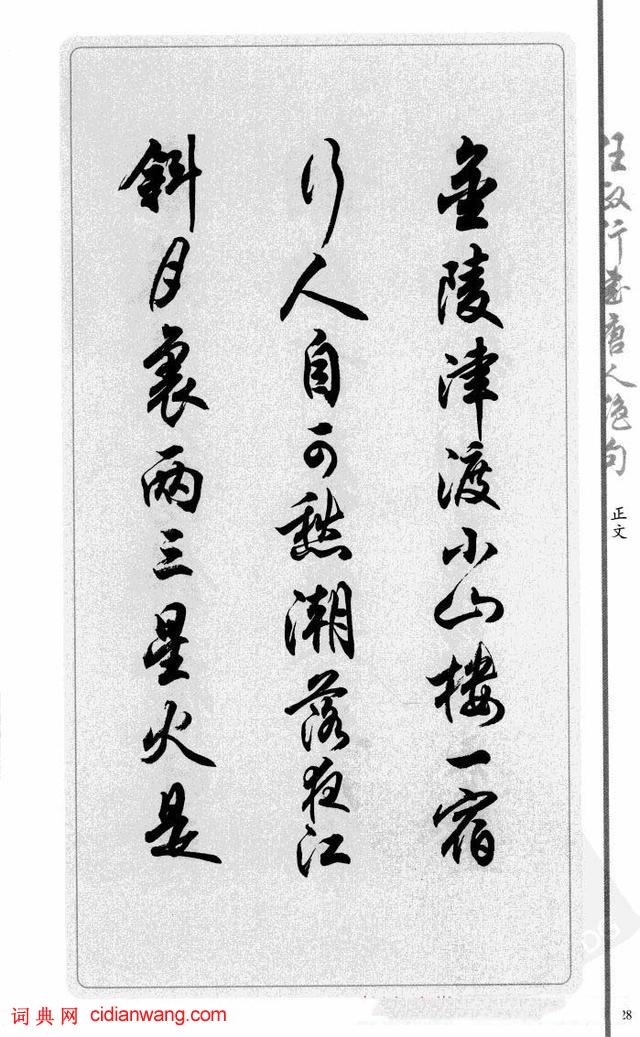 任政行書唐人絶句
正文
金陵津渡小山樓一宿
行人自可愁潮落夜江
斜月裏兩三星火是
28
词典网 cidianwang.com